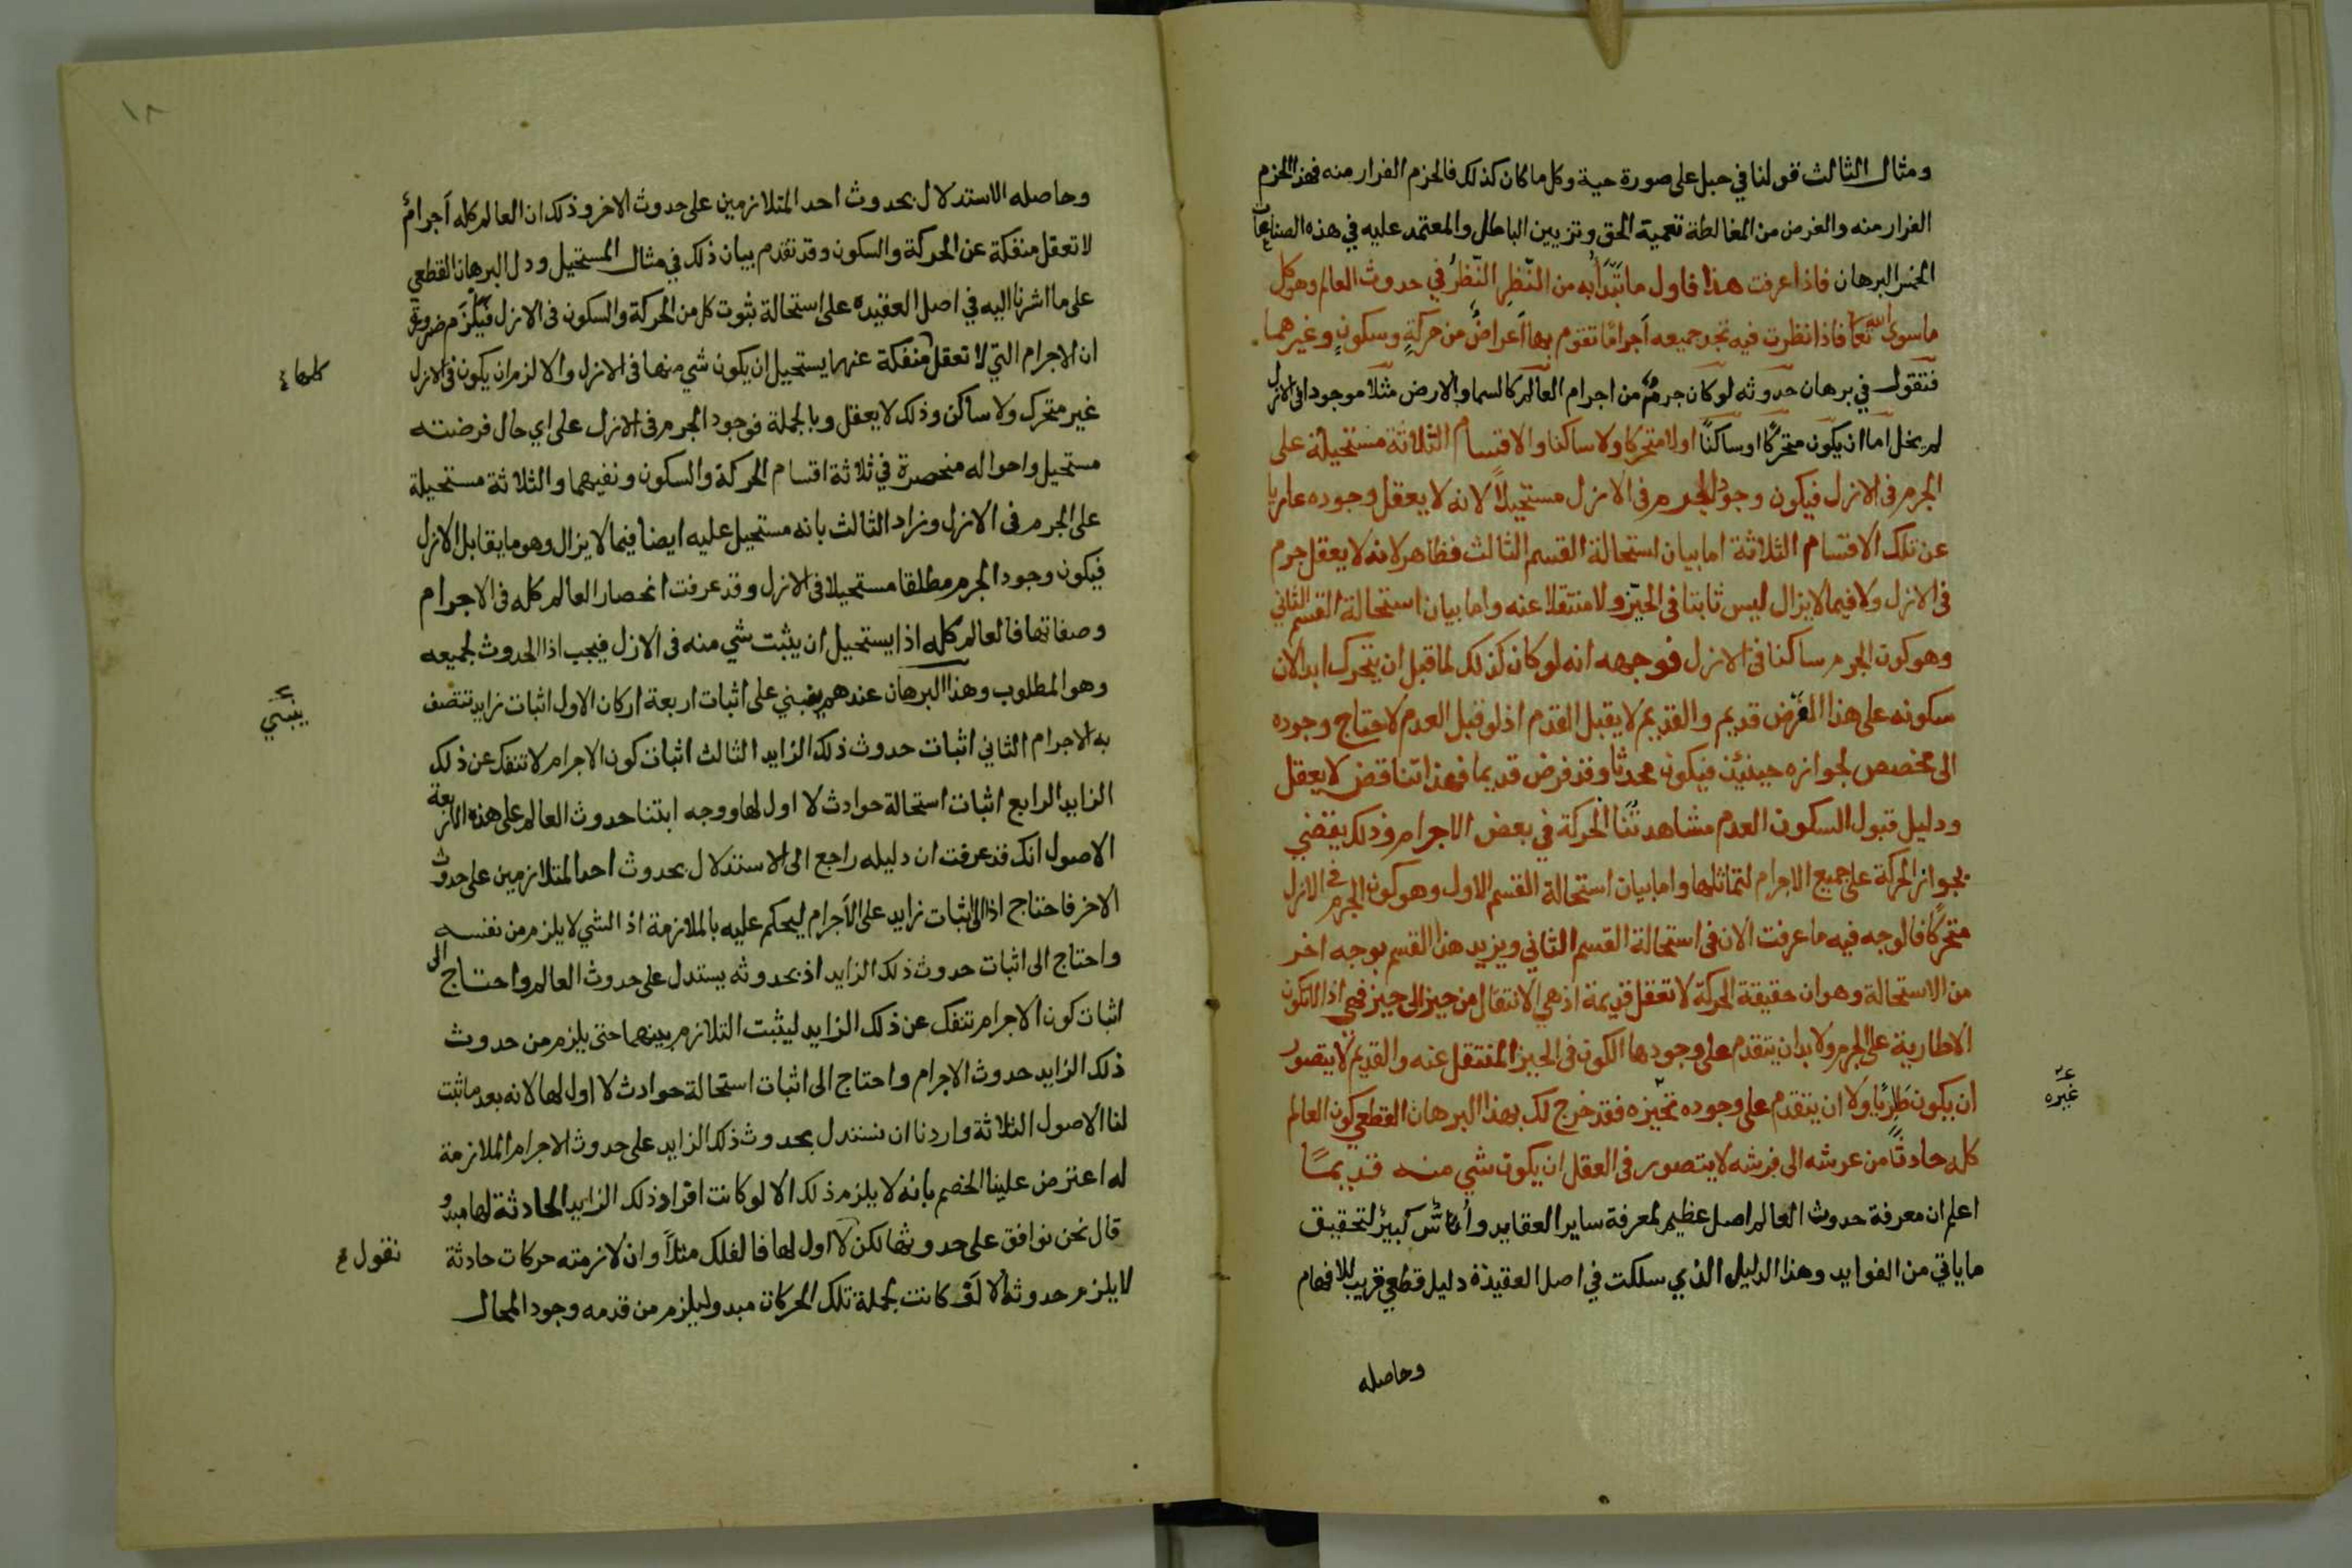 ومثال الثالث قولنا في حبل على صورة حية وكل ما كان كذلك فالحزم الفرار منه فهذا الحزم
الفرار منه والغرض من المغالطة تعمية الحق وتزيين الباطل والمعتمد عليه في هذه الصناعات
الخمس البرهان فاذا عرفت هذا فاول ما تبدأ به من النظر النظر في حدوث العالم وهو كل
ما سوى الله تعا فاذا نظرت فيه تجد جميعه أجراما تقوم بها أعراض من حركة وسكون وغيرهما
فتقول في برهان حدوثه لو كان جرم من اجرام العالم كالسما والارض مثلا موجودا في الازل
لم يخل اما ان يكون متحركا او ساكنا او لا متحركا ولا ساكنا والاقسام الثلاثة مستحيلة على
الجرم في الازل فيكون وجود الجرم في الازل مستحيلا لانه لا يعقل وجوده عاريا
عن تلك الاقسام الثلاثة اما بيان استحالة القسم الثالث فظاهر لانه لا يعقل جرم
في الازل ولا فيما لا يزال ليس ثابتا في الحيز ولا منتقلا عنه واما بيان استحالة القسم الثاني
وهو كون الجرم ساكنا في الازل فوجهه انه لو كان كذلك لما قبل ان يتحرك ابدا لان
سكونه على هذا الفرض قديم والقديم لا يقبل العدم اذ لو قبل العدم لاحتاج وجوده
الى مخصص لجوازه حينئذ فيكون محدثا وقد فرض قديما فهذا تناقض لا يعقل
ودليل قبول السكون العدم مشاهدتنا الحركة في بعض الاجرام وذلك يقضي
بجواز الحركة على جميع الاجرام لتماثلها واما بيان استحالة القسم الاول وهو كون الجرم في الازل
متحركا فالوجه فيه ما عرفت الان في استحالة القسم الثاني ويزيد هذا القسم بوجه اخر
من الاستحالة وهو ان حقيقة الحركة لا تعقل قديمة اذ هي الانتقال من حيز الى حيز فهي اذا لا تكون
الا طارية على الجرم ولا بد ان يتقدم على وجودها الكون في الحيز المنتقل عنه والقديم لا يتصور
ان يكون طريا ولا ان يتقدم على وجوده تحيزه فقد خرج لك بهذا البرهان القطعي كون العالم
غيره
كله حادثا من عرشه الى فرشه لا يتصور في العقل ان يكون شي منه قديما
اعلم ان معرفة حدوث العالم اصل عظيم لمعرفة ساير العقايد وأساس كبير لتحقيق
ما ياتي من الفوايد وهذا الدليل الذي سلكت في اصل العقيدة دليل قطعي قريب للافهام
وحاصله
١٨
وحاصله الاستدلال بحدوث احد المتلازمين على حدوث الاخر وذلك ان العالم كله أجرام
لا تعقل منفكة عن الحركة والسكون وقد تقدم بيان ذلك في مثال المستحيل ودل البرهان القطعي
على ما اشرنا اليه في اصل العقيده على استحالة ثبوت كل من الحركة والسكون في الازل فيلزم ضرورة
ان الاجرام التي لا تعقل منفكة عنهما يستحيل ان يكون شي منها في الازل والا لزم ان يكون في الازل
كلها
غير متحرك ولا ساكن وذلك لا يعقل وبالجملة فوجود الجرم في الازل على اي حال فرضته
مستحيل واحواله منحصرة في ثلاثة اقسام الحركة والسكون ونفيهما والثلاثة مستحيلة
على الجرم في الازل وزاد الثالث بانه مستحيل عليه ايضا فيما لا يزال وهو ما يقابل الازل
فيكون وجود الجرم مطلقا مستحيلا في الازل وقد عرفت انحصار العالم كله في الاجرام
وصفاتها فالعالم كله اذا يستحيل ان يثبت شي منه في الازل فيجب اذا الحدوث لجميعه
وهو المطلوب وهذا البرهان عندهم ينبني على اثبات اربعة اركان الاول اثبات زايد تتصف
ينبني
به الاجرام الثاني اثبات حدوث ذلك الزايد الثالث اثبات كون الاجرام لا تنفك عن ذلك
الزايد الرابع اثبات استحالة حوادث لا اول لها ووجه ابتنا حدوث العالم على هذه الاربعة
الاصول انك قد عرفت ان دليله راجع الى الاستدلال بحدوث احد المتلازمين على حدوث
الاخر فاحتاج اذا الى اثبات زايد على الأجرام ليحكم عليه بالملازمة اذ الشي لا يلزم من نفسه
واحتاج الى اثبات حدوث ذلك الزايد اذ بحدوثه يستدل على حدوث العالم واحتاج الى
اثبات كون الاجرام تنفك عن ذلك الزايد ليثبت التلازم بينهما حتى يلزم من حدوث
ذلك الزايد حدوث الاجرام واحتاج الى اثبات استحالة حوادث لا اول لها لانه بعد ما ثبت
لنا الاصول الثلاثة واردنا ان نستدل بحدوث ذلك الزايد على حدوث الاجرام الملازمة
له اعترض علينا الخصم بانه لا يلزم ذلك الا لو كانت افراد ذلك الزايد الحادثة لها مبدو
قال نحن نوافق على حدوثها لكن لا اول لها فالفلك مثلا وان لازمته حركات حادثة
نقول
لا يلزم حدوثه الا لو كانت لجملة تلك الحركات مبدو ليلزم من قدمه وجود المحال